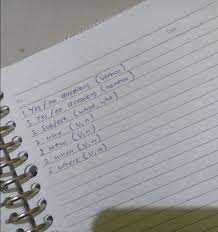 1 Yes / no questions (verbal)
1 Yes / no questions (nominal)
2 Subject (what, who)
2 Why (V, n)
2 How (V, n)
2 When (V, n)
2 Where (V, n)